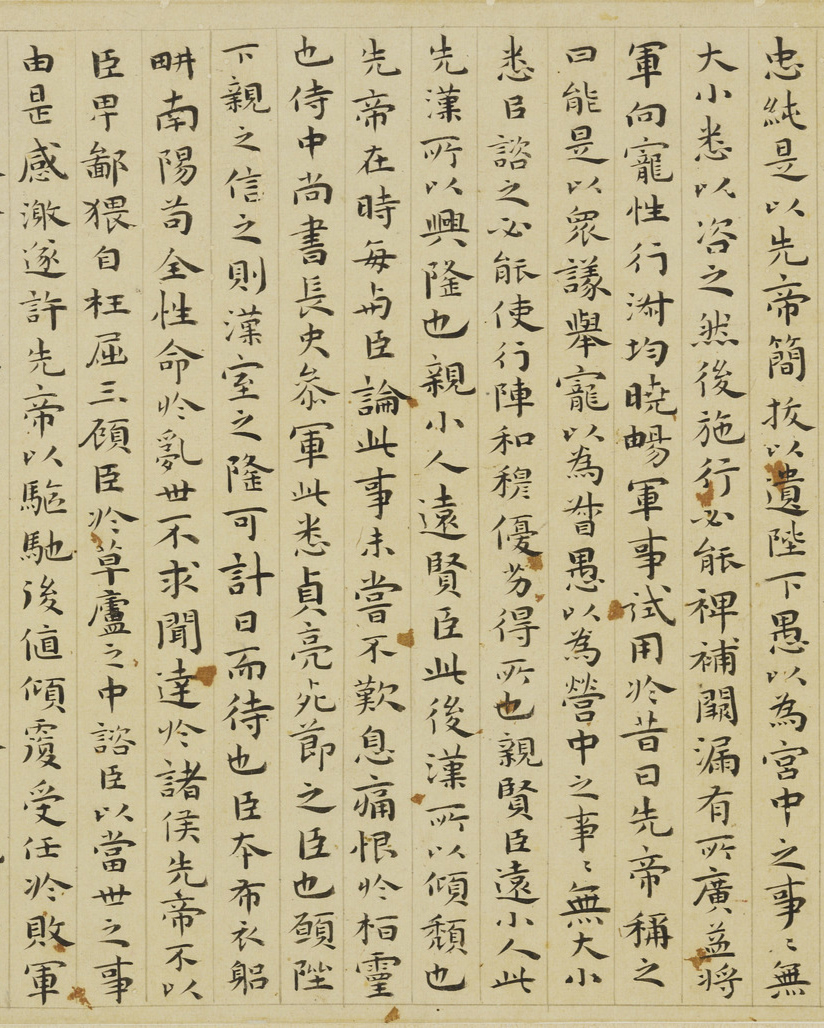 忠純是以先帝簡拔以遺陛下愚以為宮中之事〻無
大小悉以咨之然後施行必能裨補闕漏有所廣益將
軍向寵性行淑均曉暢軍事試用於昔日先帝稱之
曰能是以衆議舉寵以為督愚以為營中之事〻無大小
悉以諮之必能使行陣和穆優劣得所也親賢臣遠小人此
先漢所以興隆也親小人遠賢臣此後漢所以傾頹也
先帝在時每與臣論此事未嘗不歎息痛恨於桓靈
也侍中尚書長史叅軍此悉貞亮死節之臣也願陛
下親之信之則漢室之隆可計日而待也臣本布衣躬
畊南陽苟全性命於亂世不求聞達於諸侯先帝不以
臣卑鄙猥自枉屈三顧臣於草廬之中諮臣以當世之事
由是感激遂許先帝以驅馳後值傾覆受任於敗軍